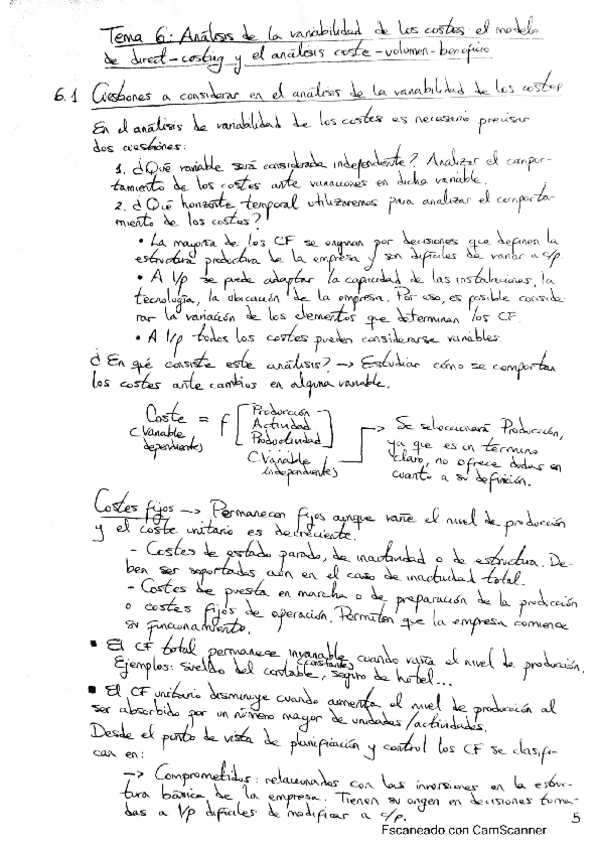 Tema 6: Análisis de la variabilidad de los costes: el modelo
de direct-costing y el análisis coste-volumen-beneficio
6.1 Cuestiones a considerar en el análisis de la variabilidad de los costes
En el análisis de variabilidad de los costes es necesario precisar
dos cuestiones:
1. ¿Qué variable será considerada independiente? Analizar el compor-
tamiento de los costes ante variaciones en dicha variable.
2. ¿Qué horizonte temporal utilizaremos para analizar el comporta-
miento de los costes?
• La mayoría de los CF se originan por decisiones que definen la
estructura productiva de la empresa y son difíciles de variar a c/p.
• A l/p se puede adaptar la capacidad de las instalaciones, la
tecnología, la ubicación de la empresa. Por eso, es posible conside-
rar la variación de los elementos que determinan los CF.
• A l/p todos los costes pueden considerarse variables.
¿En qué consiste este análisis? → Estudiar cómo se comportan
los costes ante cambios en alguna variable.
Coste = f [Producción
Actividad
Productividad]
(Variable
dependientes)
(Variable
independientes)
→ Se seleccionará Producción,
ya que es un término
claro, no ofrece dudas en
cuanto a su definición.
Costes fijos → Permanecen fijos aunque varíe el nivel de producción
y el coste unitario es decreciente.
- Costes de estado parado, de inactividad o de estructura. De-
ben ser soportados aún en el caso de inactividad total.
- Costes de puesta en marcha o de preparación de la producción
o costes fijos de operación. Permiten que la empresa comience
su funcionamiento.
▪ El CF total permanece invariable (constante) cuando varía el nivel de producción.
Ejemplos: sueldo del contable, seguro de hotel...
▪ El CF unitario disminuye cuando aumenta el nivel de producción al
ser absorbido por un número mayor de unidades/actividades.
Desde el punto de vista de planificación y control los CF se clasifi-
can en:
→ Comprometidos: relacionados con las inversiones en la estruc-
tura básica de la empresa. Tienen su origen en decisiones toma-
das a l/p difíciles de modificar a c/p.
5
Escaneado con CamScanner